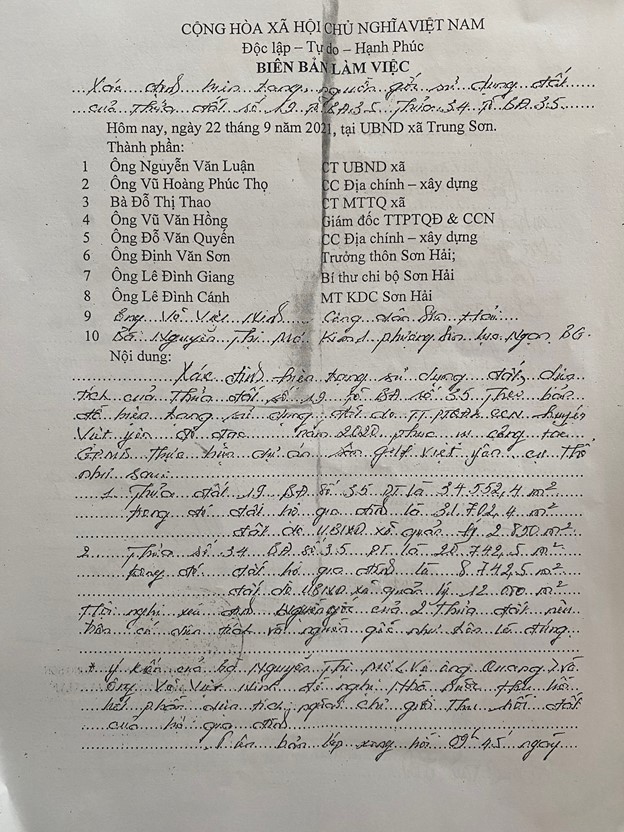 CỘNG HÒA XÃ HỘI CHỦ NGHĨA VIỆT NAM
Độc lập – Tự do – Hạnh Phúc
BIÊN BẢN LÀM VIỆC
Xác định hiện trạng, nguồn gốc sử dụng đất
của Thửa đất số 19 tờ BĐ 35 Thửa 34 tờ BĐ 35
Hôm nay, ngày 22 tháng 9 năm 2021, tại UBND xã Trung Sơn.
Thành phần:
1 Ông Nguyễn Văn Luận CT UBND xã
2 Ông Vũ Hoàng Phúc Thọ CC Địa chính – xây dựng
3 Bà Đỗ Thị Thao CT MTTQ xã
4 Ông Vũ Văn Hồng Giám đốc TTPTQĐ & CCN
5 Ông Đỗ Văn Quyển CC Địa chính – xây dựng
6 Ông Định Văn Sơn Trưởng thôn Sơn Hải;
7 Ông Lê Đình Giang Bí thư chi bộ Sơn Hải
8 Ông Lê Đình Cánh MT KDC Sơn Hải
9 Ông Việt Ninh Công dân Sơn Hải
10 Bà Nguyễn Thị Mơ Ngạn BG
Nội dung:
Xác định hiện trạng sử dụng đất, diện
tích của Thửa đất số 19 tờ BĐ số 35 Theo bản
đồ hiện trạng sử dụng đất do TT PTQĐ & CCN huyện
Việt Yên đo đạc năm 2020 phục vụ công tác
GPMB thực hiện dự án sân Golf Việt Yên cụ thể
như sau:
1. Thửa đất 19 BĐ số 35 DT là 34.552,4 m²
trong đó đất hộ gia đình là 31.702,4 m²
đất do UBND xã quản lý 2.850 m²
2. Thửa số 34 BĐ số 35 DT là 20.742,5 m²
trong đó đất hộ gia đình là 8.742,5 m²
đất do UBND xã quản lý 12.000 m²
Hội nghị xác định nguồn gốc của 2 thửa đất nêu
trên có diện tích và nguồn gốc như trên là đúng
* ý kiến của bà Nguyễn Thị Mơ (Vợ ông Quang) và
Ông Việt Ninh đề nghị Nhà nước thu hồi
hết phần diện tích ngoài chỉ giới thu hồi đất
của hộ gia đình
Biên bản lập xong hồi 09h 45 ngày